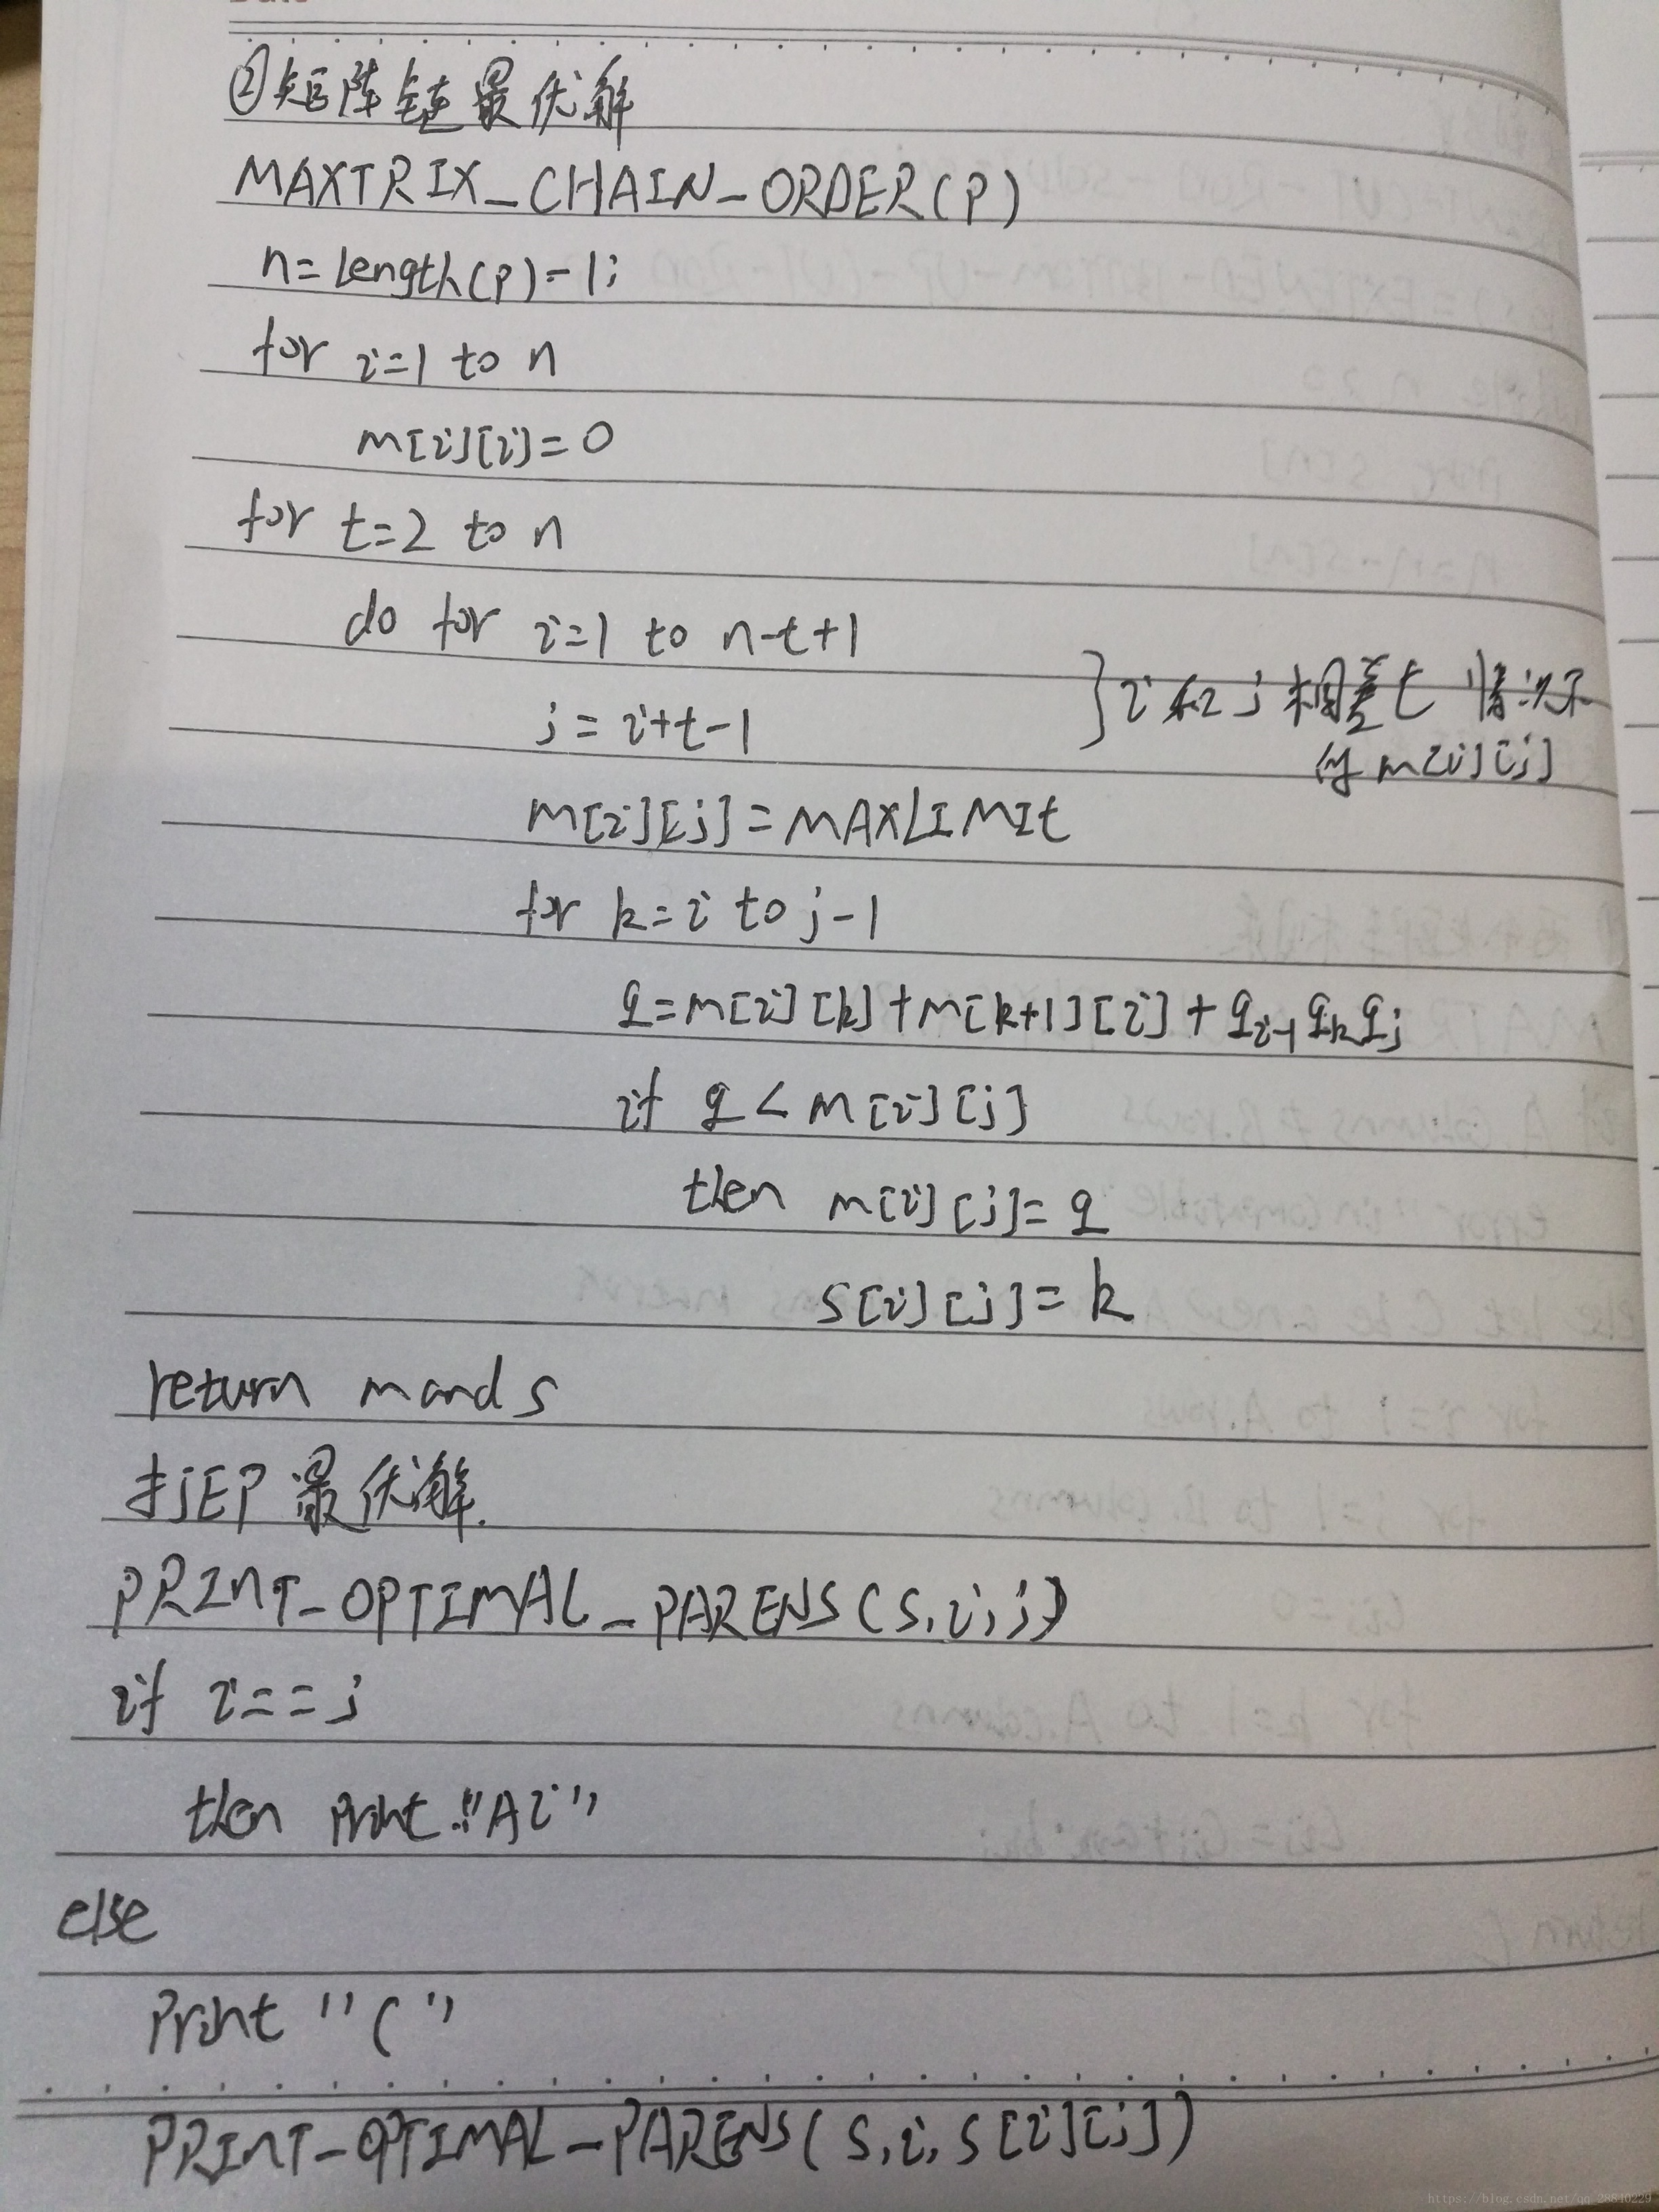 ②矩阵链最优解
MAXTRIX_CHAIN_ORDER(P)
n=length(p)-1;
for i=1 to n
m[i][i]=0
for t=2 to n
do for i=1 to n-t+1
j=i+t-1
}i和j相差t情况下
的m[i][j]
m[i][j]=MAXLIMIt
for k=i to j-1
q=m[i][k]+m[k+1][i]+qi-1qkqj
if q<m[i][j]
then m[i][j]=q
s[i][j]=k
return m and s
打印最优解.
PRINT_OPTIMAL_PARENS(s,i,j)
if i==j
then print "Ai"
else
Print "("
PRINT_OPTIMAL_PARENS(s,i,s[i][j])
https://blog.csdn.net/qq_28840229